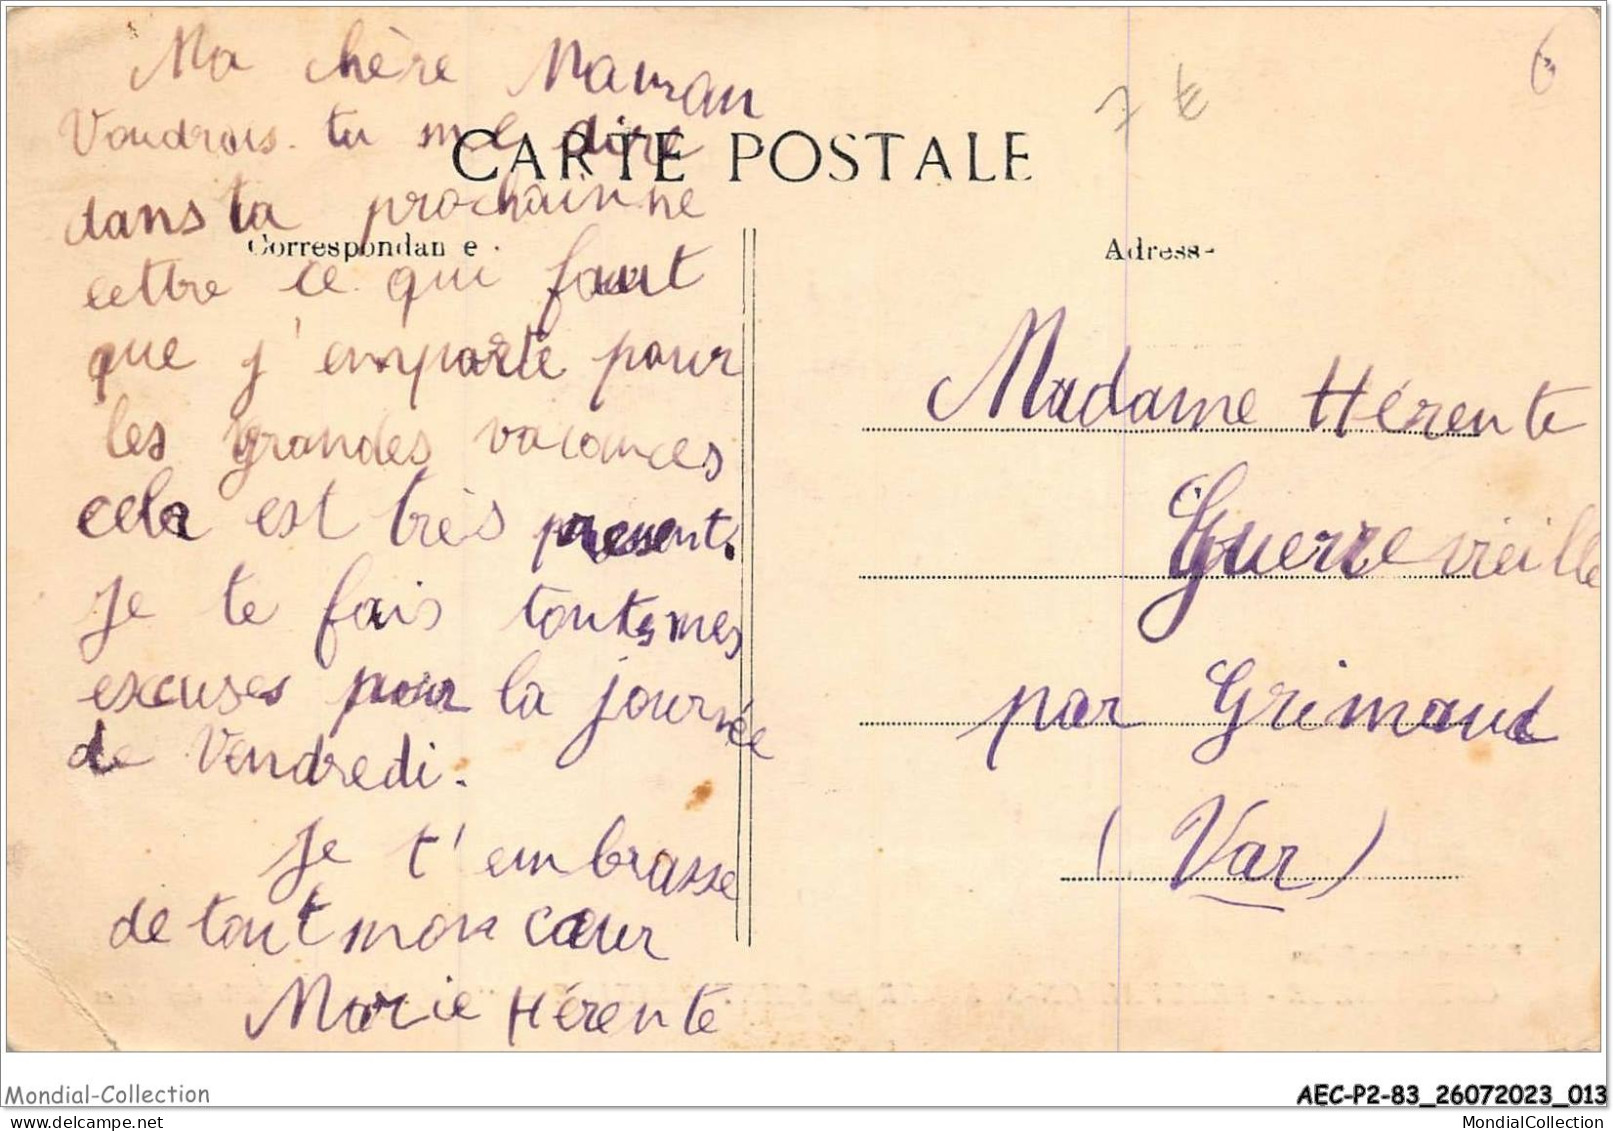 Ma chère Maman
Voudrais-tu me dire
CARTE POSTALE
dans ta prochainne
Correspondan e
cettre ce qui faut
que j'emporte pour
les grandes vacances
cela est très pressent.
Je te fais toutes mes
excuses pour la journée
de Vendredi.
Je t'embrasse
de tout mon cœur
Marie Hérente
7 €
6
Adress-
Madame Hérente
Guerrevieille
par Grimaud
(Var)
Mondial-Collection
AEC-P2-83_26072023_013
www.mondialcollection.com
MondialCollection